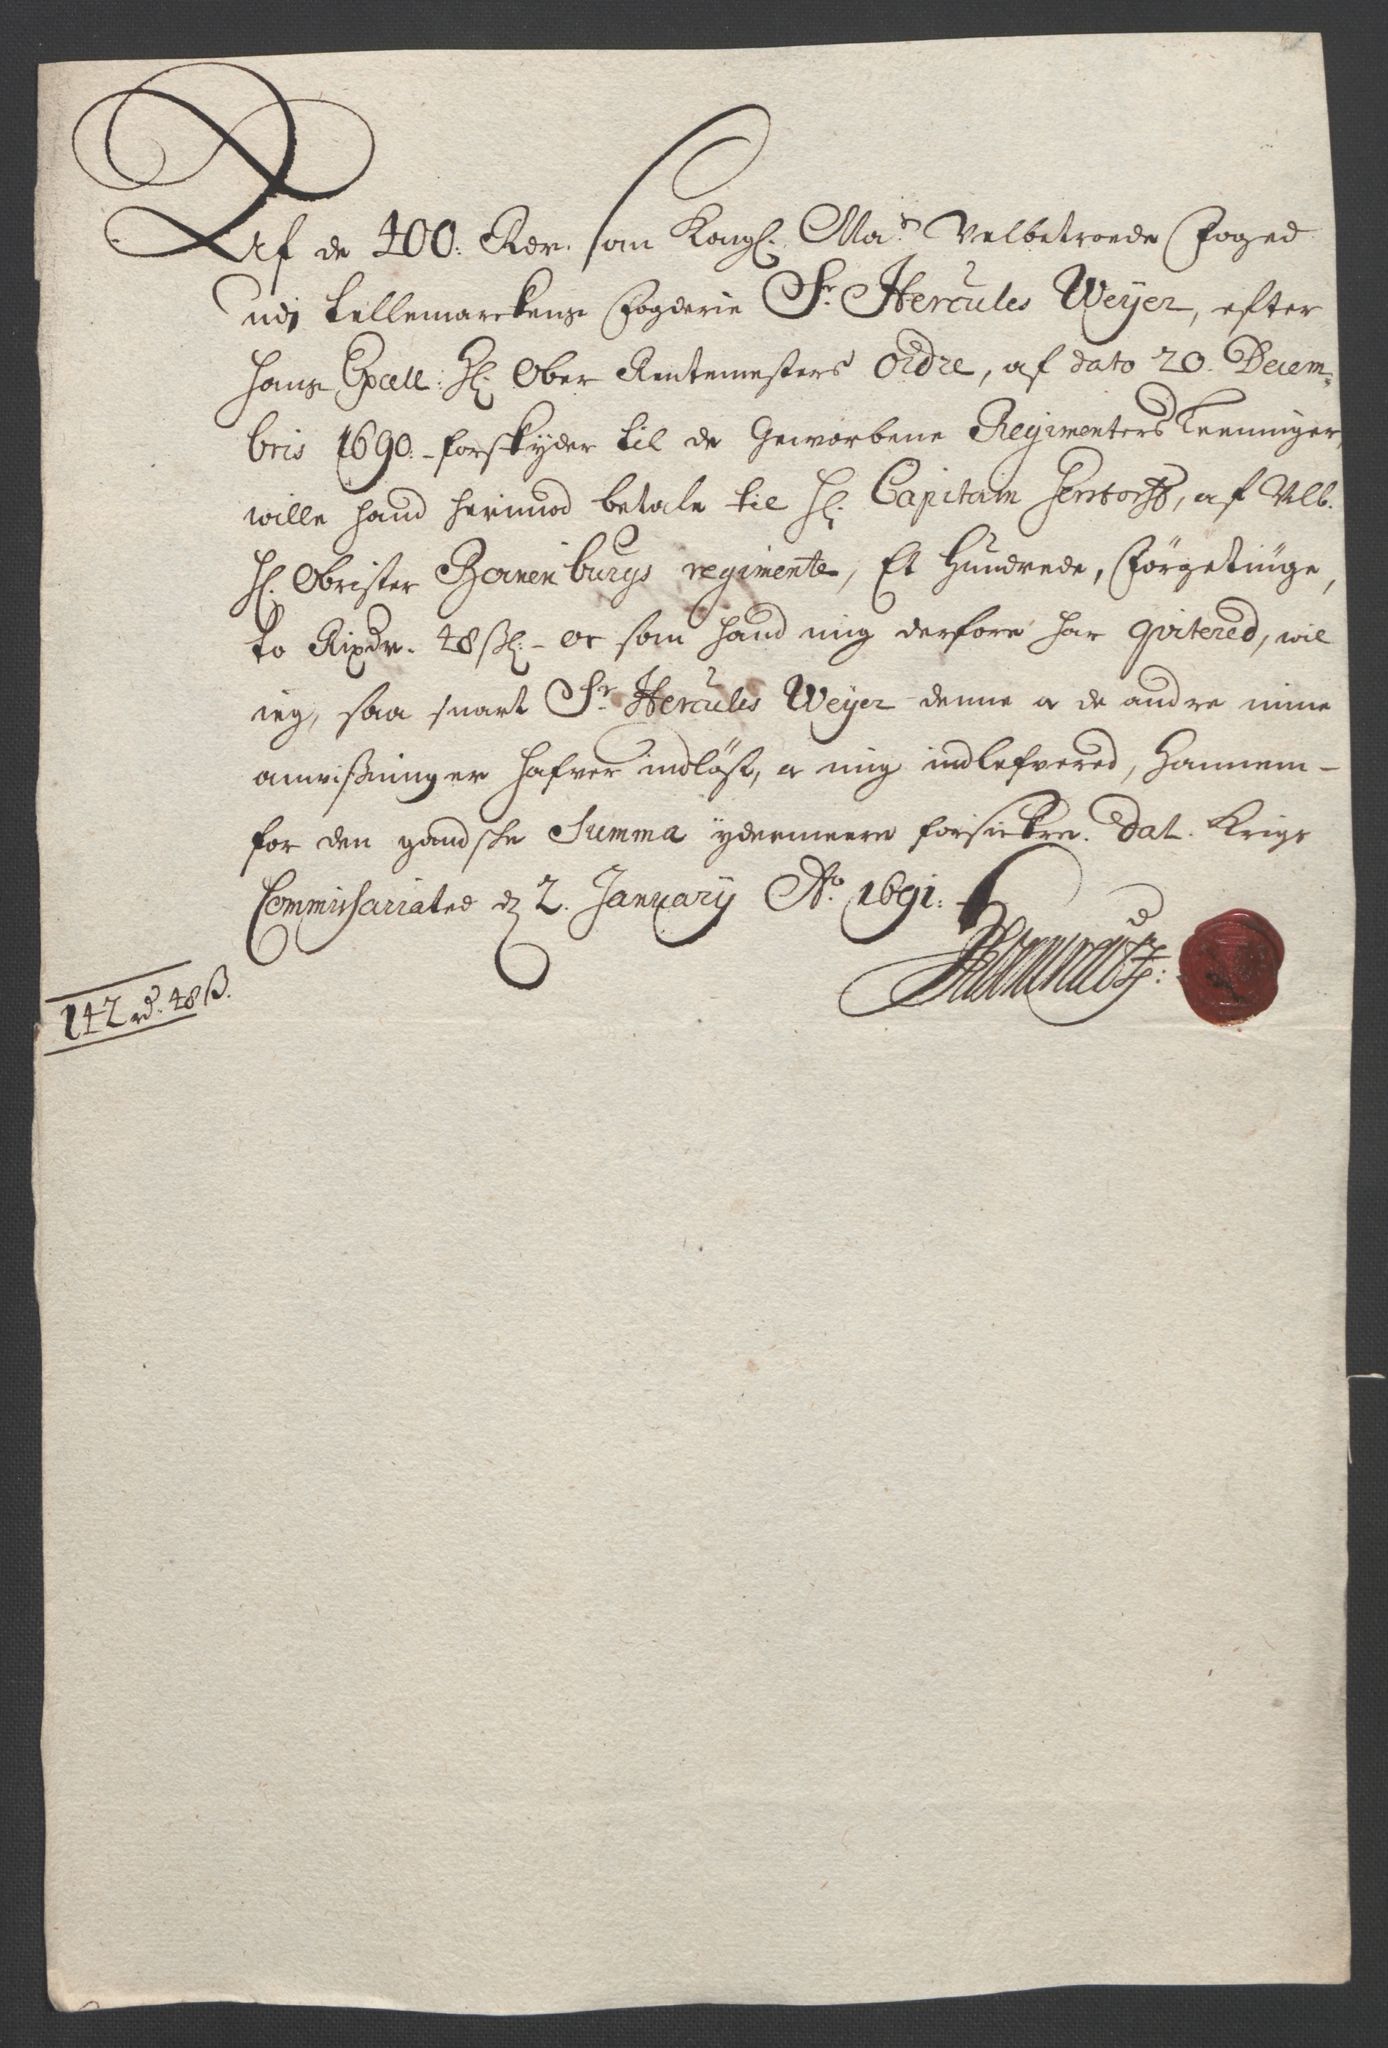 Af de 400: Rdr. som Kongl. Ma.ts Velbetroede Foged
udj Tellemarckens Fogderie Sr. Hercules Weyer, efter
hans Excell: Hl. Ober Rentemesters Ordre, af dato 20. Decem-
bris 1690. forskyder til de Geworbene Regimenters Leeninger,
wille hand herimod betale til Hl. Capitain, af Velb.
Hl. Obrister regimente, Et Hundrede, Förgetiuge,
to Rixdr. 48 ßl: - oc som hand mig derfore har qvitered, wil
ieg, saa snart Sr. Hercules Weyer denne oc de andre mine
anvißninger hafver indlöst, oc mig indlefvered, Hannem-
for den gandske Summa ydermeere forsickre. Dat. Krigs
Commissariated d. 2. January Ao. 1691.
142 rd. 48 ß.